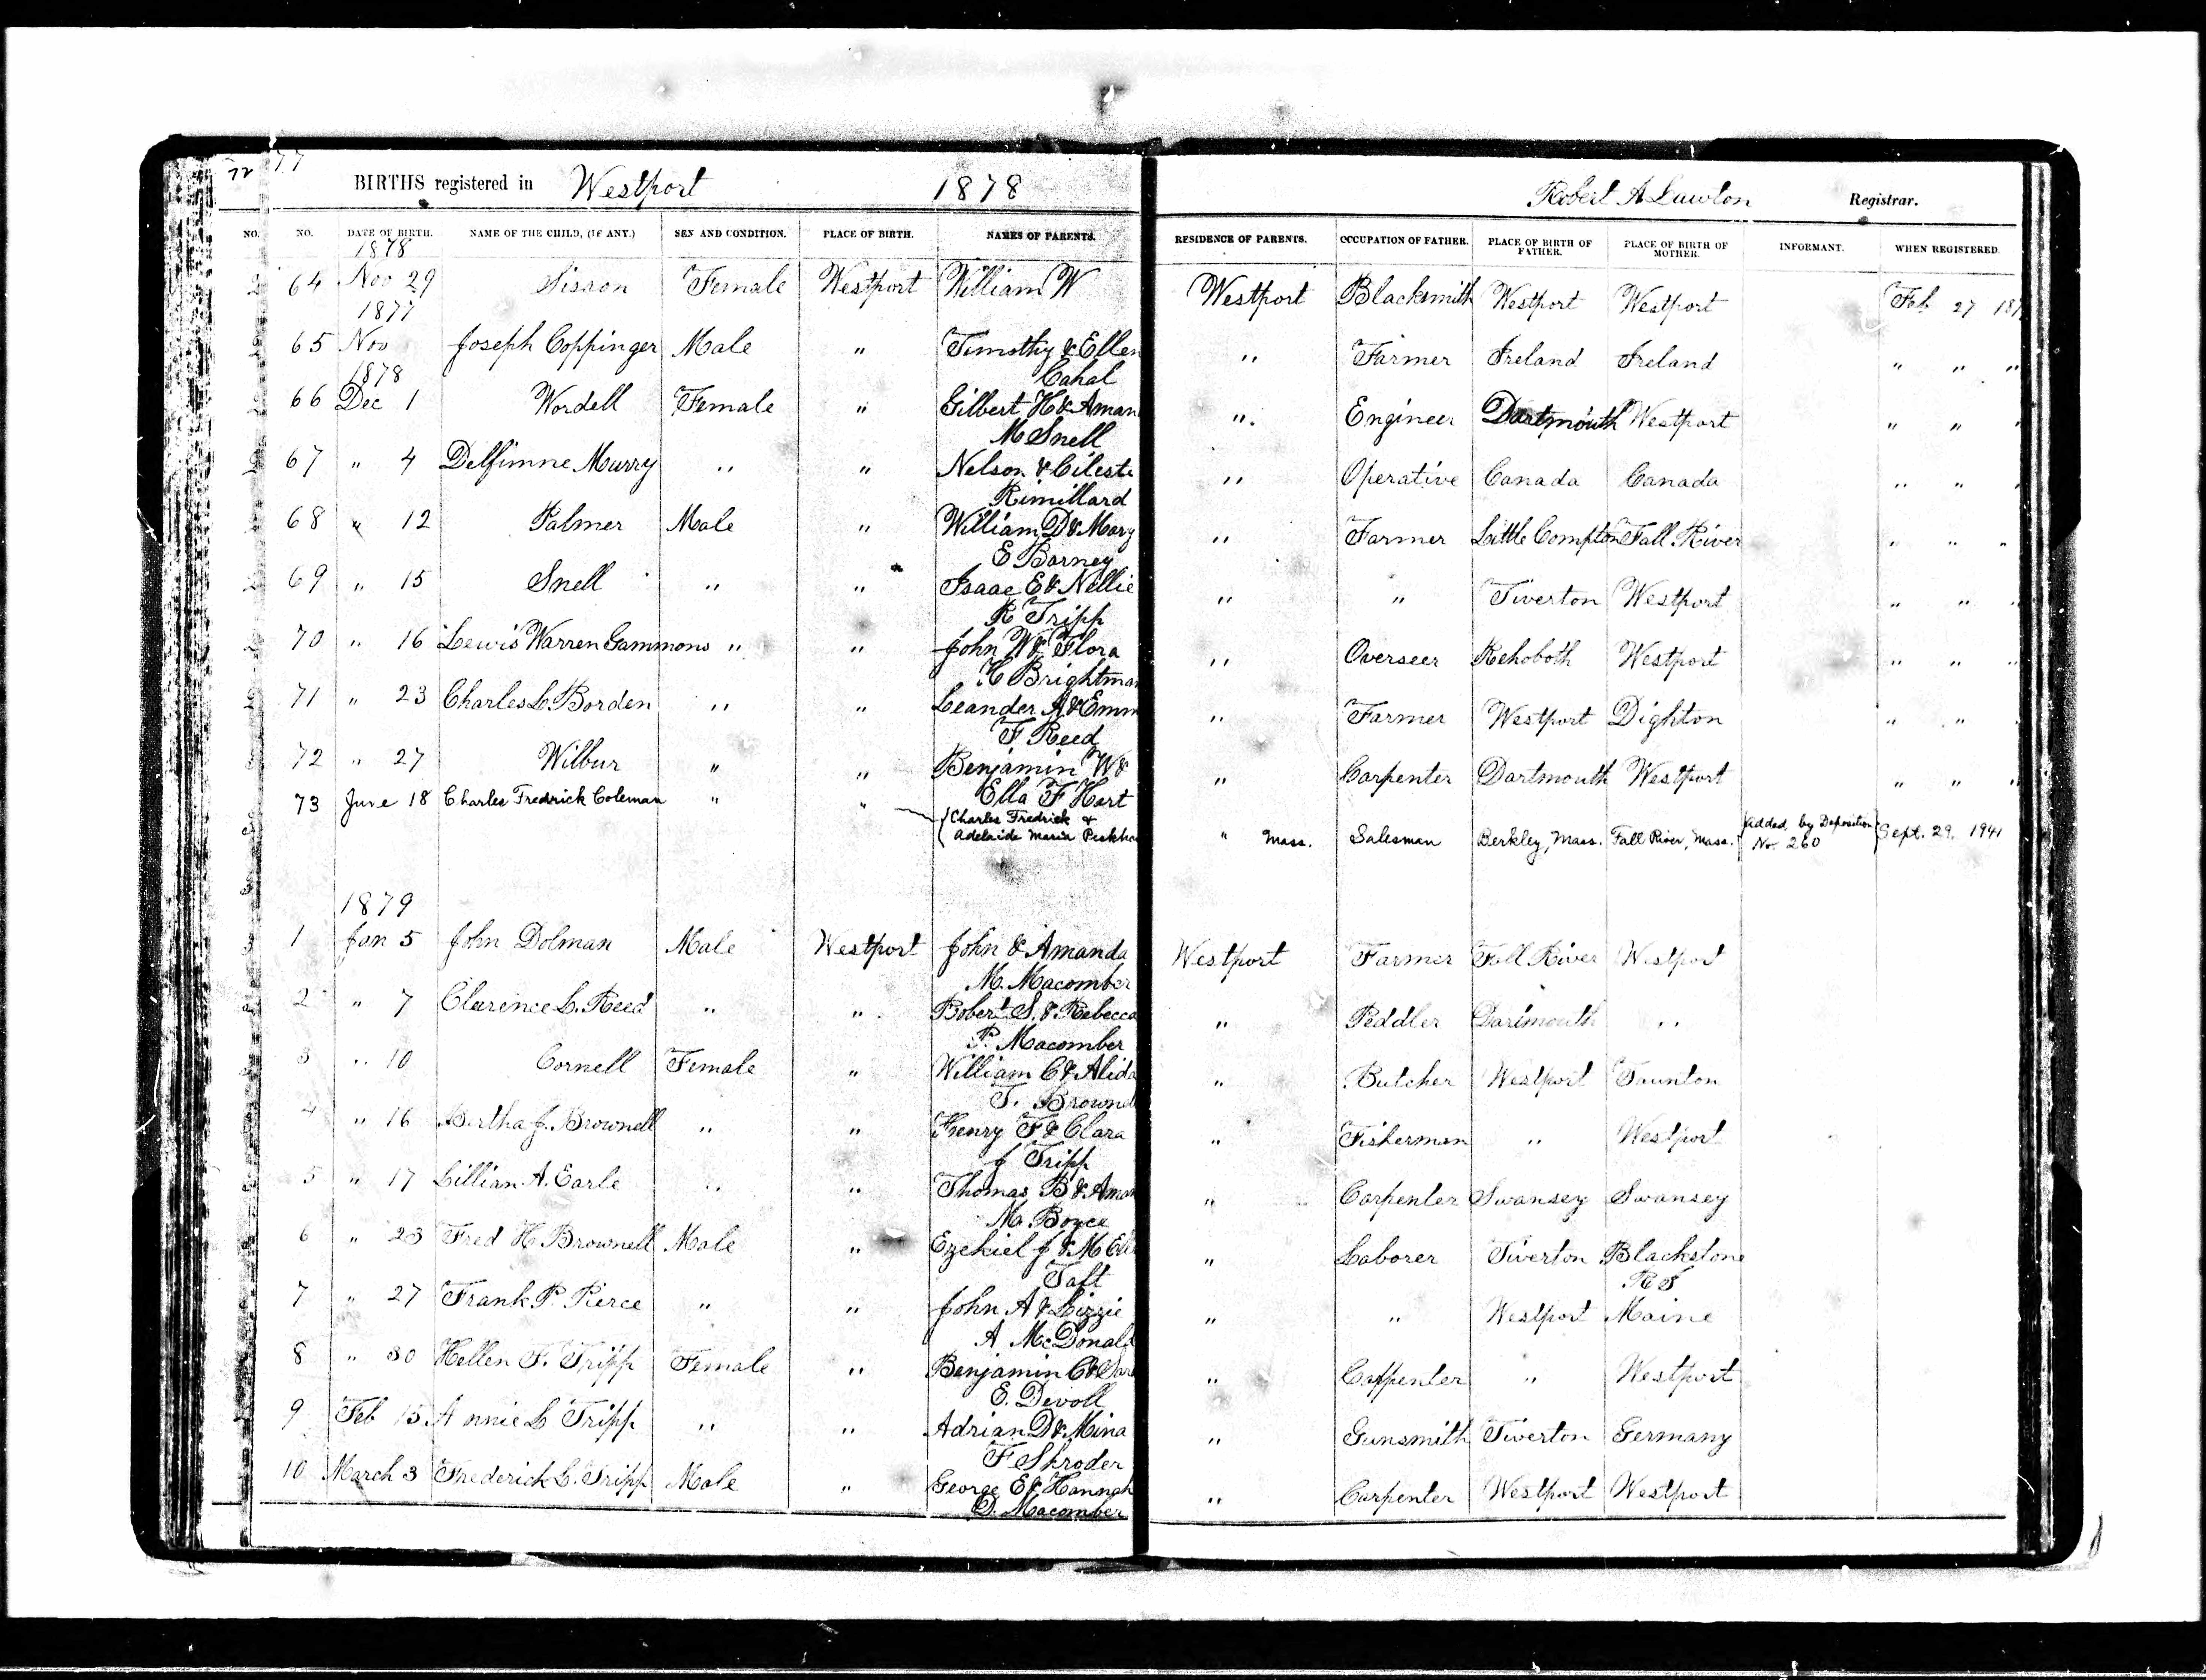 72 77
BIRTHS registered in Westport 1878
NO. NO. DATE OF BIRTH. NAME OF THE CHILD, (IF ANY.) SEX AND CONDITION. PLACE OF BIRTH. NAMES OF PARENTS.
1878
64 Nov 29 Sisson Female Westport William W
1877
65 Nov Joseph Coppinger Male " Timothy & Ellen
Cahal
1878
66 Dec 1 Wordell Female " Gilbert H & Aman
M Snell
67 " 4 Delfimne Murry " " Nelson & Cileste
Rimillard
68 " 12 Palmer Male " William D & Mary
E Barney
69 " 15 Snell " " Isaac E & Nellie
R Tripp
70 " 16 Lewis Warren Gammons " " John W & Flora
H Brightman
71 " 23 Charles L. Borden " " Leander A & Emm
F Reed
72 " 27 Wilbur " " Benjamin W &
Ella F Hart
73 June 18 Charles Fredrick Coleman " " Charles Fredrick &
Adelaide Maria Peckham
1879
1 Jan 5 John Dolman Male Westport John & Amanda
M. Macomber
2 " 7 Clarence L. Reed " " Robert S. & Rebecca
P. Macomber
3 " 10 Cornell Female " William C & Alida
T. Brownell
4 " 16 Bertha J. Brownell " " Henry F & Clara
J Tripp
5 " 17 Lillian A. Earle " " Thomas B & Aman
M. Boyce
6 " 23 Fred H Brownell Male " Ezekiel J & M Ell
Taft
7 " 27 Frank P. Pierce " " John A & Lizzie
A McDonald
8 " 30 Hellen F. Tripp Female " Benjamin C & Sar
E. Devoll
9 Feb 15 Annie L Tripp " " Adrian D & Mina
F Shroder
10 March 3 Frederick L. Tripp Male " George E & Hannah
D. Macomber
Robert A Lawton Registrar.
RESIDENCE OF PARENTS. OCCUPATION OF FATHER. PLACE OF BIRTH OF FATHER. PLACE OF BIRTH OF MOTHER. INFORMANT. WHEN REGISTERED.
Westport Blacksmith Westport Westport Feb 27 187
" Farmer Ireland Ireland " " "
" Engineer Dartmouth Westport " " "
" Operative Canada Canada " " "
" Farmer Little Compton Fall River " " "
" " Tiverton Westport " " "
" Overseer Rehoboth Westport " " "
" Farmer Westport Dighton " " "
" Carpenter Dartmouth Westport " " "
" Mass. Salesman Berkley, Mass. Fall River, Mass. Added by Deposition No. 260 Sept. 29. 1941
Westport Farmer Fall River Westport
" Peddler Dartmouth "
" Butcher Westport Taunton
" Fisherman " Westport
" Carpenter Swansey Swansey
" Laborer Tiverton Blackstone
R I
" " Westport Maine
" Carpenter " Westport
" Gunsmith Tiverton Germany
" Carpenter Westport Westport